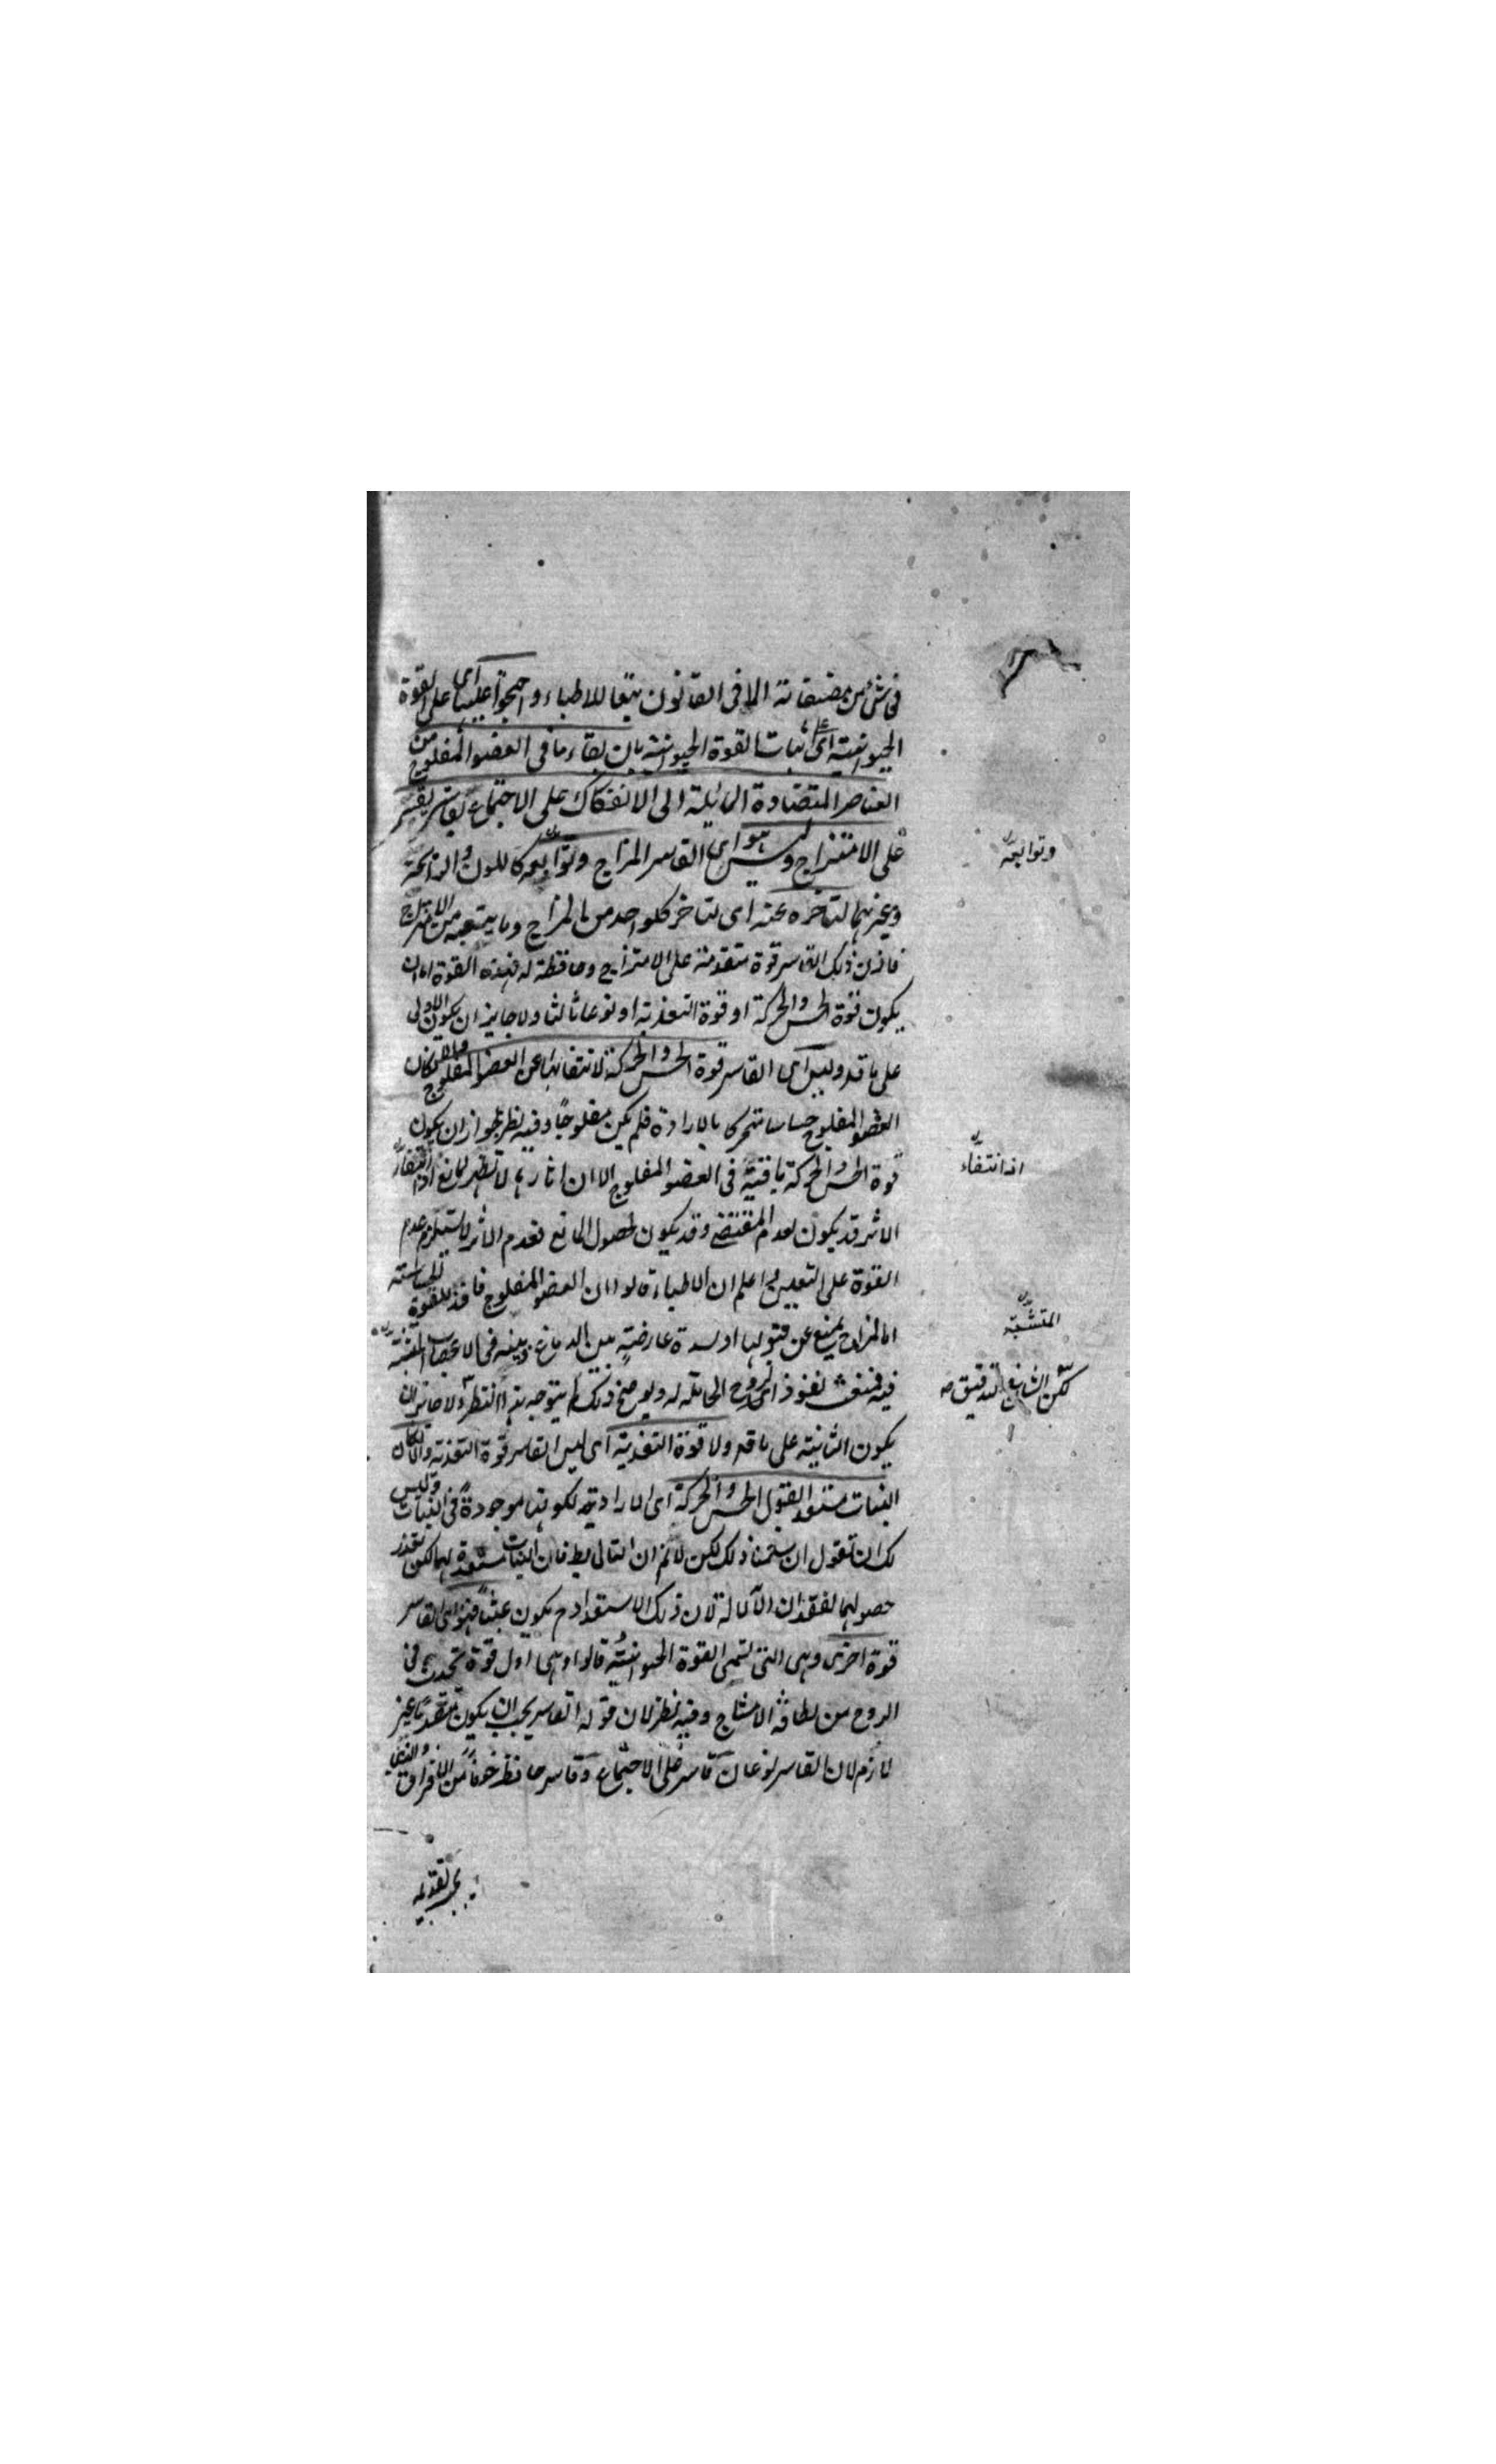 في شئ من مصنفاته الا في القانون تبعا للاطباء واحتجوا عليها اى على القوة
الحيوانية اى على اثبات القوة الحيوانية بان بقاء ما فى العضو المفلوج من
العناصر المتضادة المائلة الى الانفكاك على الاجتماع بقاسر يقسر
على الامتزاج وليس هو اى القاسر المزاج وتوابعه كاللون والرائحة
وغيرهما لتاخره عنه اى لتاخر كلواحد من المزاج وما يتبعه من الامتزاج
فاذن ذلك القاسر قوة متقدمة على الامتزاج وحافظة له فهذه القوة اما ان
يكون قوة الحس والحركة او قوة التغذية او نوعا ثالثا ولا جايز ان يكون الاولى
على ما قد وليس اى القاسر قوة الحس والحركة لانتفائها عن العضو المفلوج والا لكان
العضو المفلوج حساسا متحركا بالارادة فلم يكن مفلوجا وفيه نظر لجواز ان يكون
قوة الحس والحركة باقية فى العضو المفلوج الا ان اثارها لا تظهر لمانع اذ انتفاء
الاثر قد يكون لعدم المقتضى وقد يكون لحصول المانع فعدم الاثر لا يستلزم عدم
القوة على التعيين اعلم ان الاطباء قالوا ان العضو المفلوج فاقد للقوة الحساسة
اما لمزاج يمنع عن قبولها او لسدة عارضة بين الدماغ وبينه فى الاعصاب المنبثة
فيه فمنعت نفوذ اى الروح الحاملة له ويوضح ذلك لم يتوجه هذا النظر ولا جائز ان
يكون الثانية على ما قد ولا قوة التغذية اى ليس القاسر قوة التغذية والا لكان
النبات مستعدا لقبول الحس والحركة اى الارادية لكونها موجودة فى النبات وليس
لك ان تقول ان سلمنا ذلك لكن لانم ان التالى بط فان النبات مستعدة لهما لكن تعذر
حصولهما لفقدان الآلة لان ذلك الاستعداد ح يكون عبثا فهو اى القاسر
قوة اخرى وهى التى تسمى القوة الحيوانية قالوا وهى اول قوة تحدث فى
الروح من لطافة الامشاج وفيه نظر لان قوله القاسر يجب ان يكون متقدما غير
لازم لان القاسر نوعان قاسر على الاجتماع وقاسر حافظ خوفا من الافتراق والذى
يجب تقديمه
وتوابعه
اذ انتفاء
المتشبثة
لكن الشايع